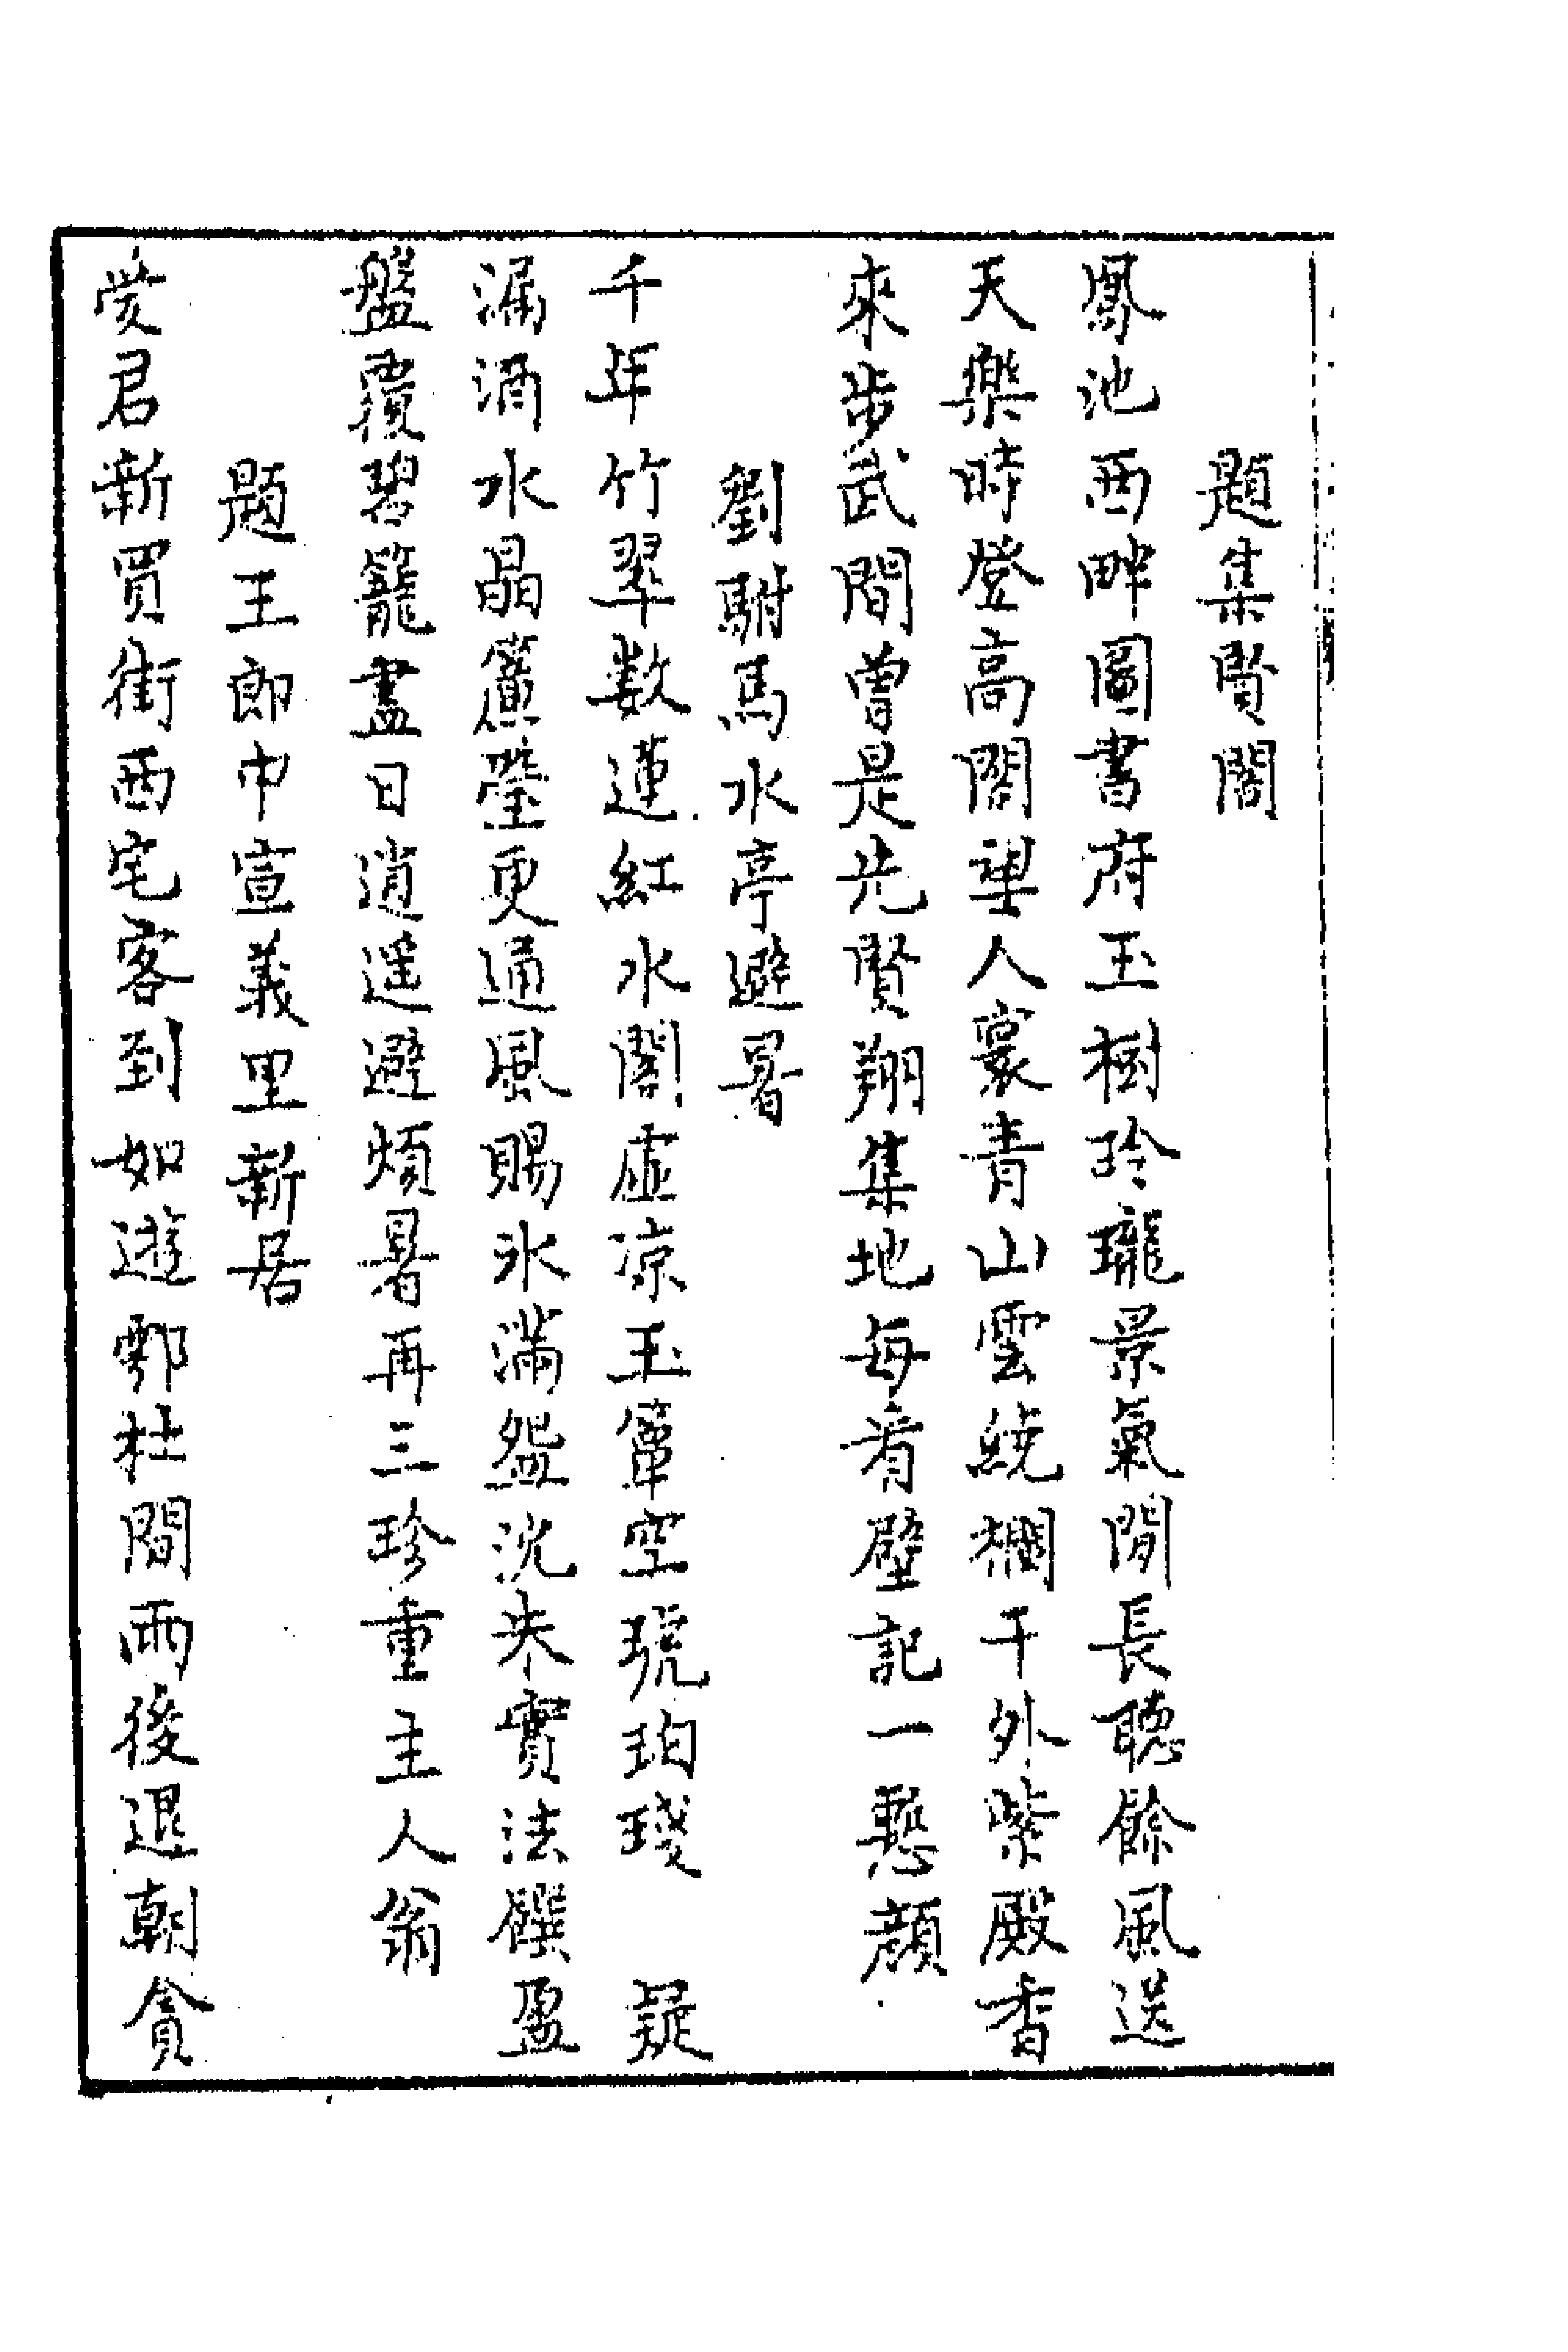 題集賢閣
鳳池西畔圖書府玉樹玲瓏景氣閒長聽餘風送
天樂時登高閣望人寰青山雲繞欄干外紫殿香
來步武間曾是先賢翔集地每看壁記一慙顔
劉駙馬水亭避暑
千年竹翠數蓮紅水閣虛凉玉簟空琥珀琖 疑
漏酒水晶簾瑩更通風賜氷滿盌沈朱實法饌盈
盤覆碧籠盡日逍遥避煩暑再三珍重主人翁
題王郎中宣義里新居
愛君新買街西宅客到如遊鄠杜間雨後退朝貪